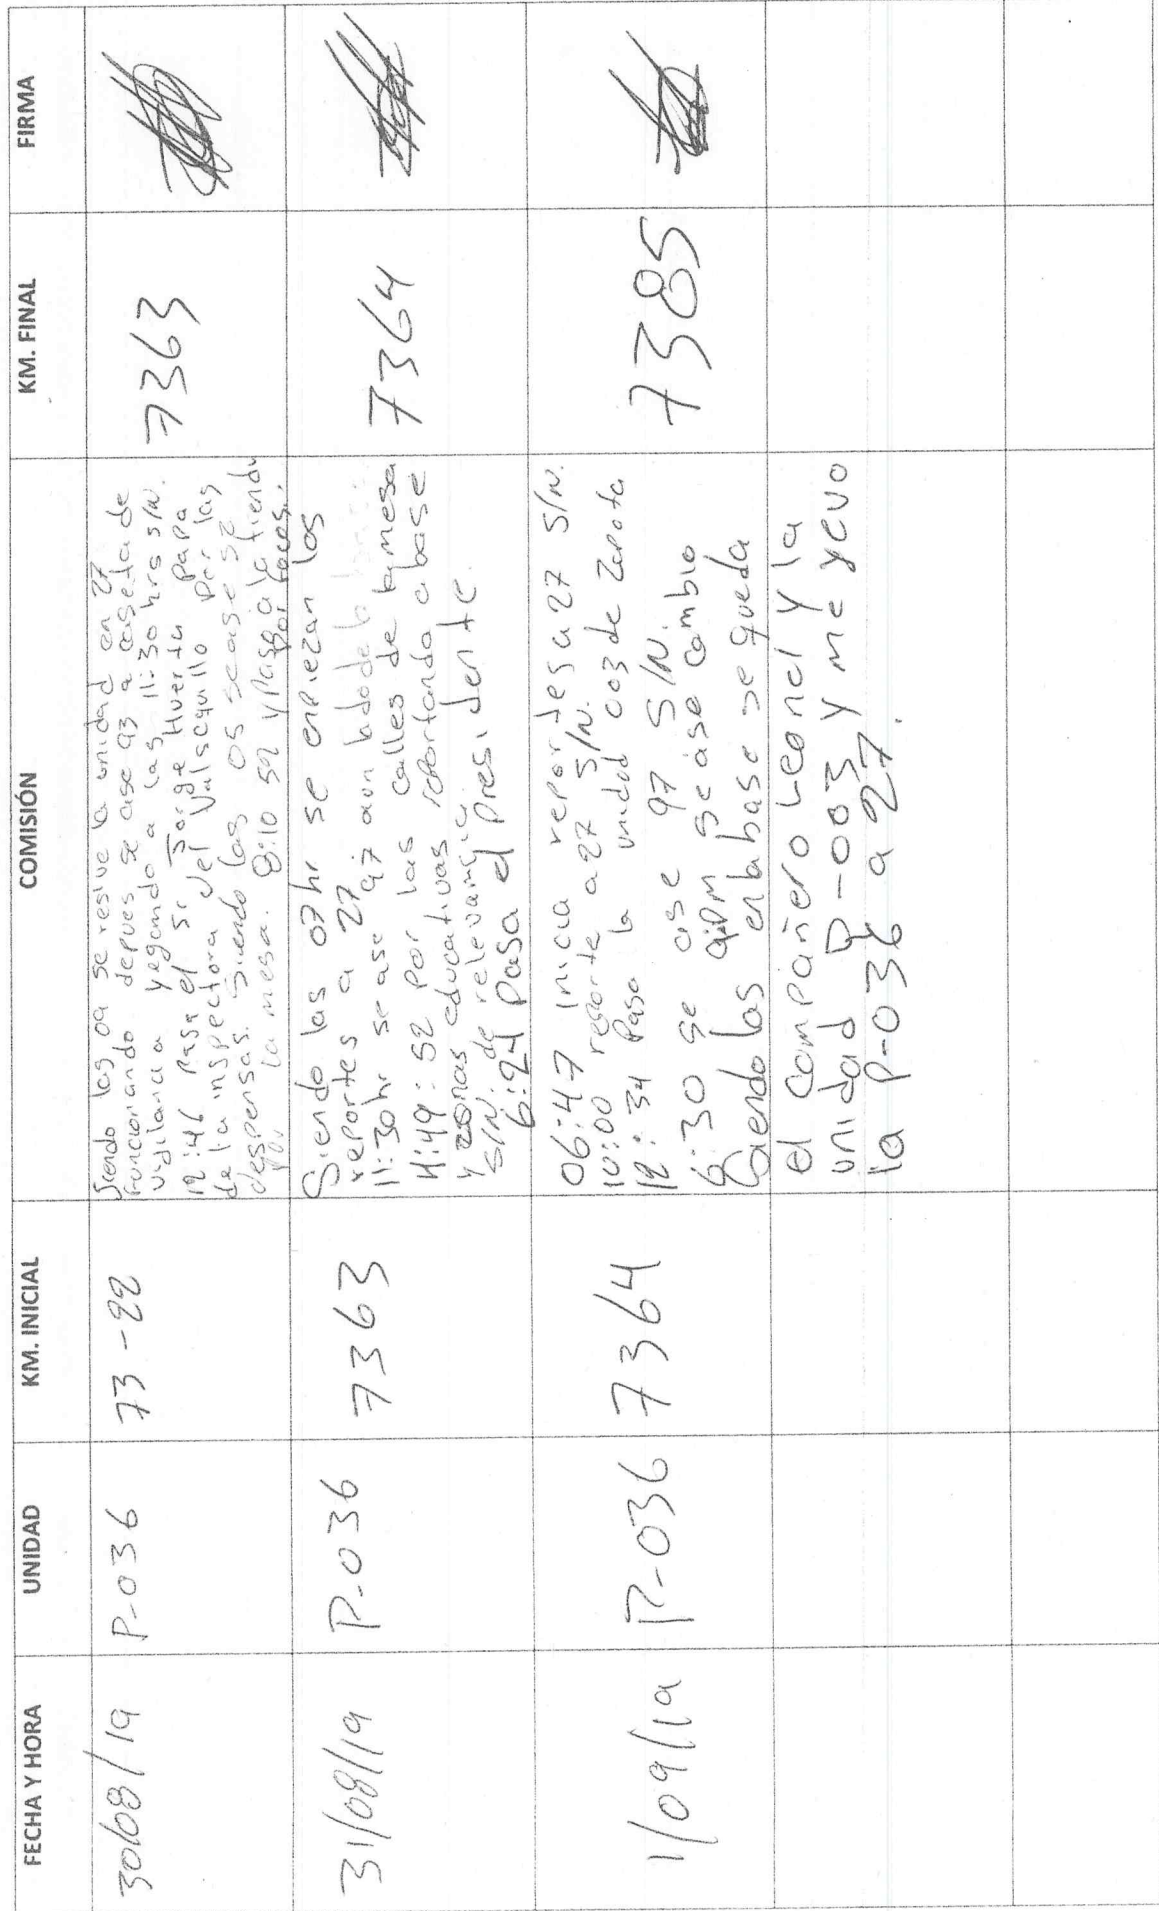 FECHA Y HORA UNIDAD KM. INICIAL COMISIÓN KM. FINAL FIRMA
30/08/19 P-036 73-22
Siendo las 09 se resive la unidad en 27
funcionando depues se ase 93 a caseta de
vidilancia yegando a las 11:30 hrs s/n.
12:46 pasa el Sr Jorge Huerta papa
de la inspectora del Valsequillo por las
despensas. Siendo las 05 se ase 52
por la mesa. 8:10 52 y pasa a la tienda
por focos.
7363
31/08/19 P-036 7363
Siendo las 07 hr se enpiezan los
reportes a 27
11:30 hr se ase 97 a un lado de la
4:49: 52 por las calles de la mesa
y zonas educativas reportando a base
S/N. de relevancia
6:24 pasa el presidente
7364
1/09/19 P-036 7364
06:47 inicia reportes a 27 S/N.
10:00 reporte a 27 S/N.
12:34 Pasa la unidad 003 de Zapata
6:30 se ase 97 S/N.
Siendo las se ase cambio
en la base se queda
7385
el compañero Leonel y la
unidad P-003 y me yevo
la P-036 a 27.